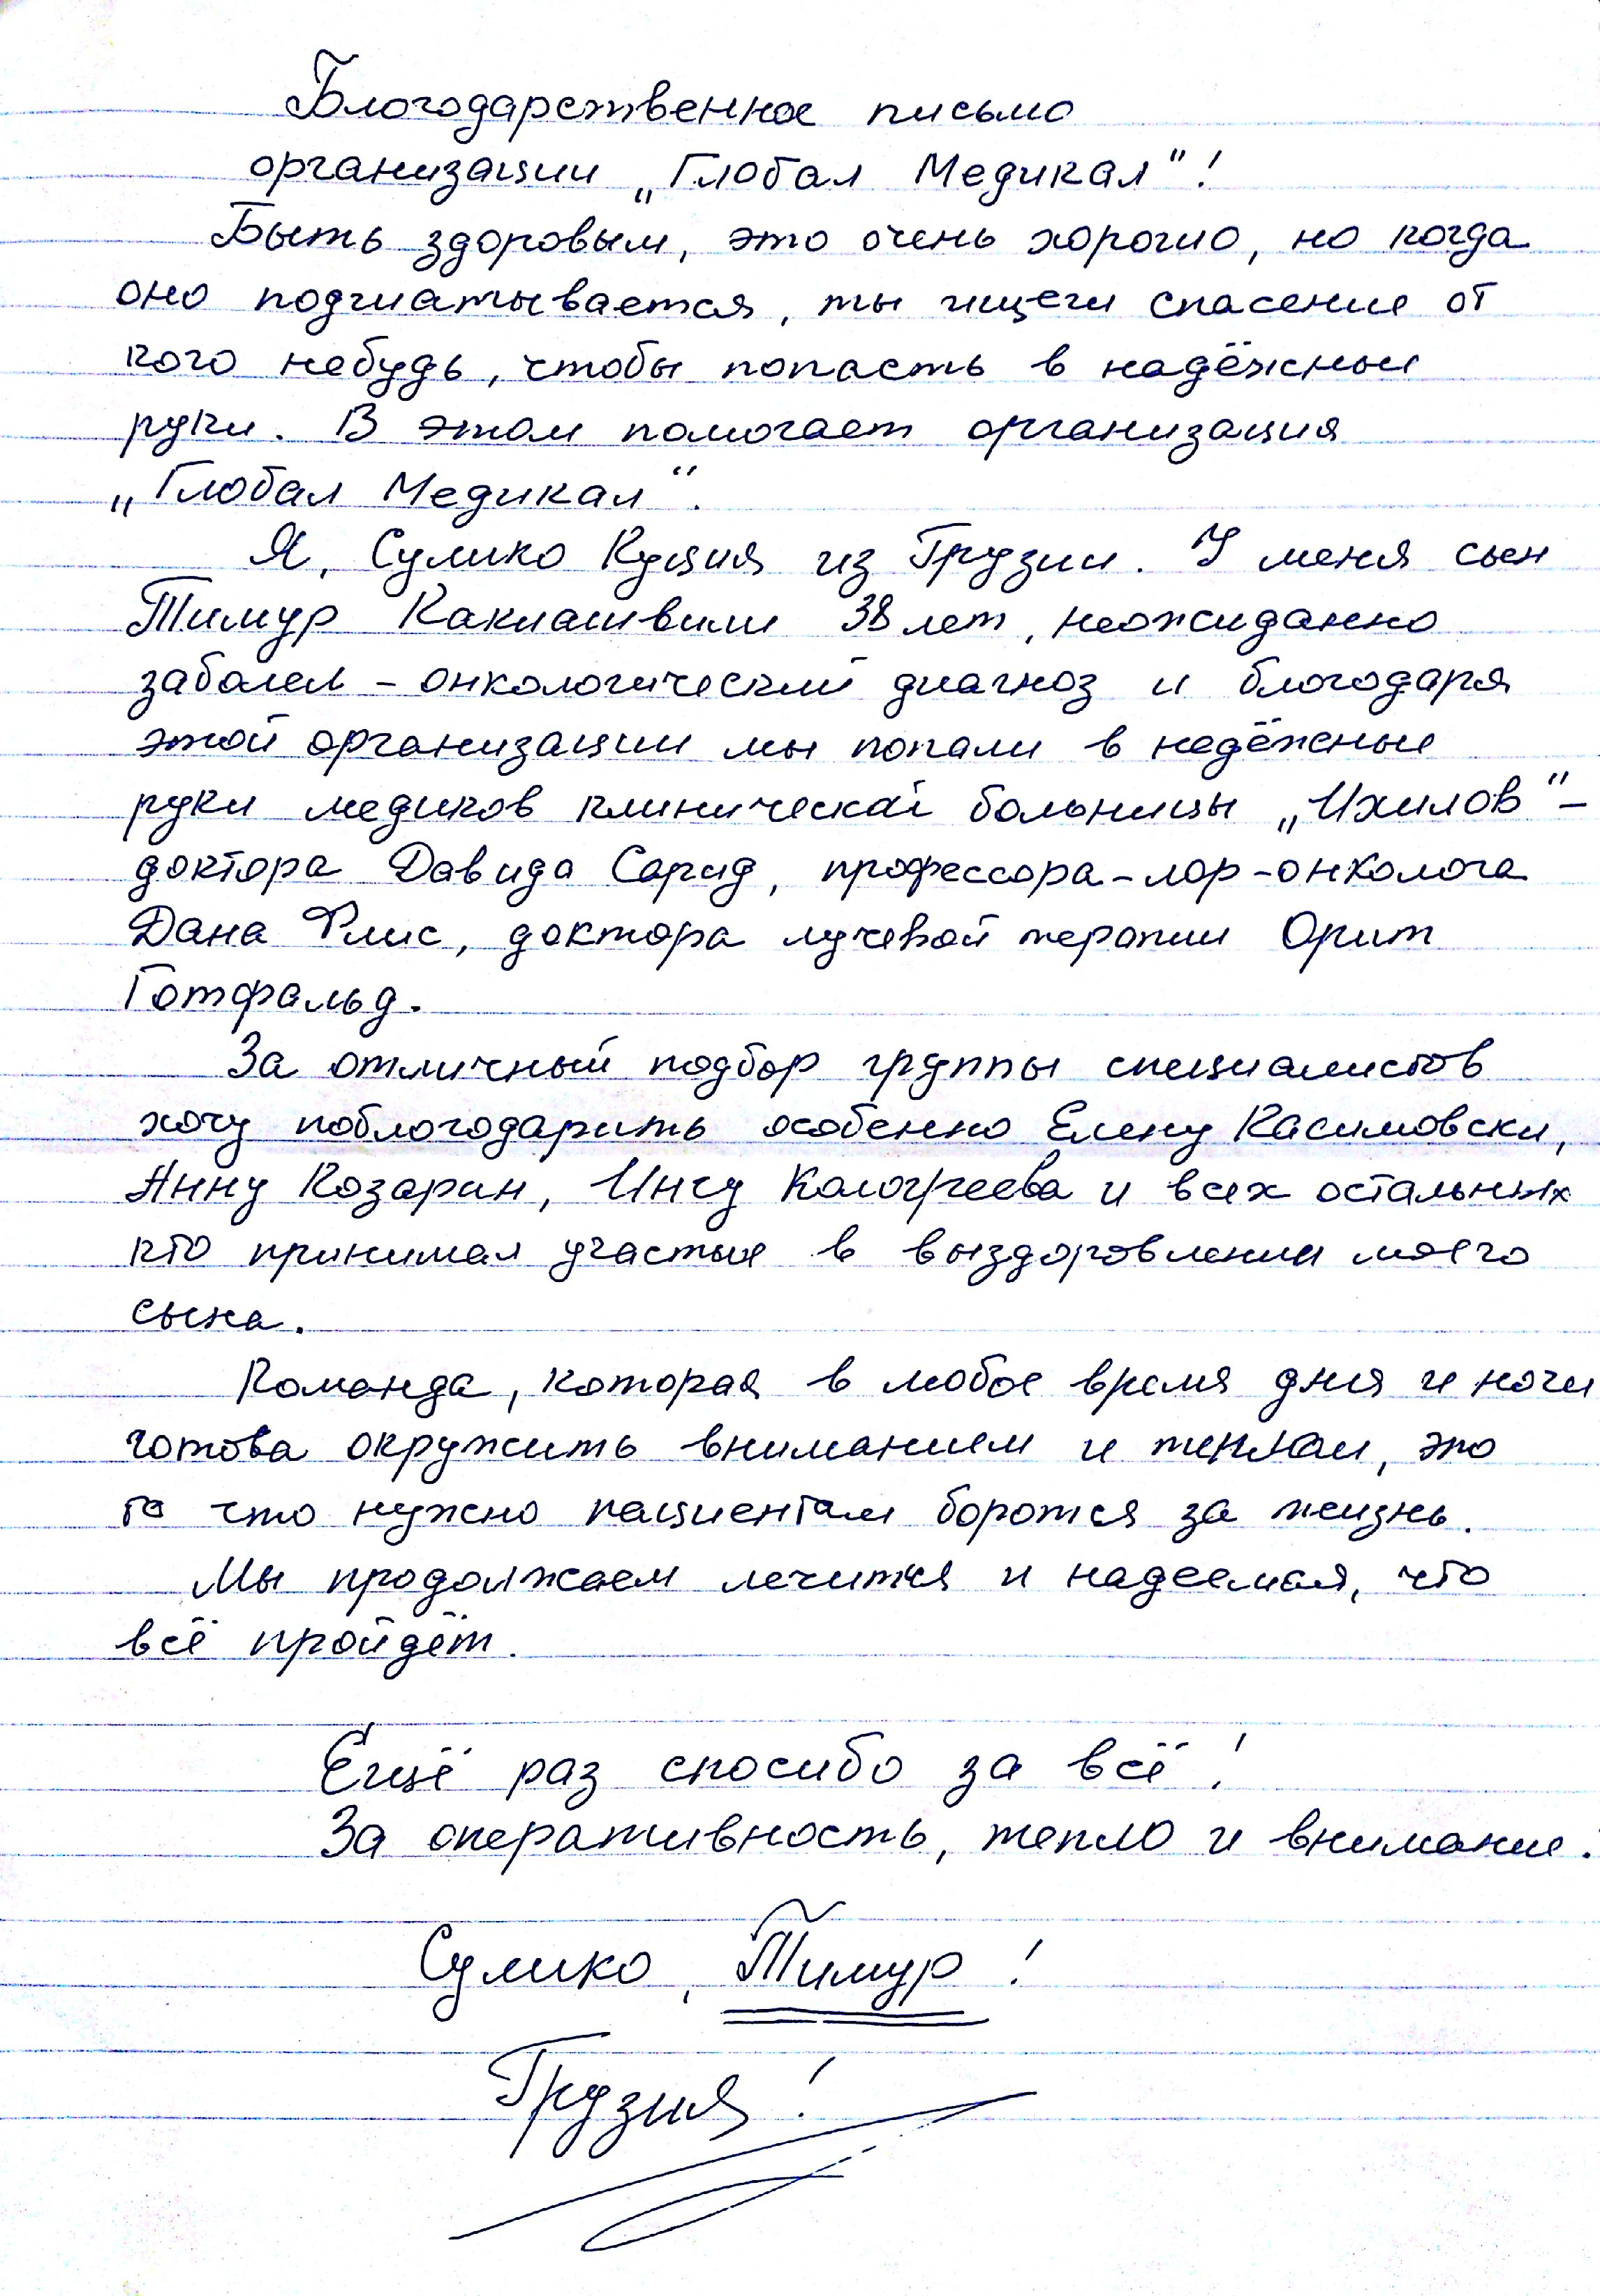 Благодарственное письмо
организации „Глобал Медикал“!
Быть здоровым, это очень хорошо, но когда
оно подшатывается, ты ищеш спасение от
кого небудь, чтобы попасть в надёжные
руки. В этом помогает организация
„Глобал Медикал“.
Я, Сулико Куция из Грузии. У меня сын
Тимур Каклашвили 38 лет, неожиданно
заболел – онкологический диагноз и благодаря
этой организации мы попали в надёжные
руки медиков клинической больницы „Ихилов“ –
доктора Давида Сарид, профессора-лор-онколога
Дана Флис, доктора лучевой терапии Орит
Готфальд.
За отличный подбор группы специалистов
хочу поблогодарить особенно Елену Касимовски,
Анну Козарин, Инну Кологреева и всех остальных
кто принимал участие в выздоровлении моего
сына.
Команда, которая в любое время дня и ночи
готова окружить вниманием и теплом, это
то что нужно пациентам боротся за жизнь.
Мы продолжаем лечится и надеемся, что
всё пройдёт.
Ещё раз спосибо за всё!
За оперативность, тепло и внимание.
Сулико, Тимур!
Грузия!